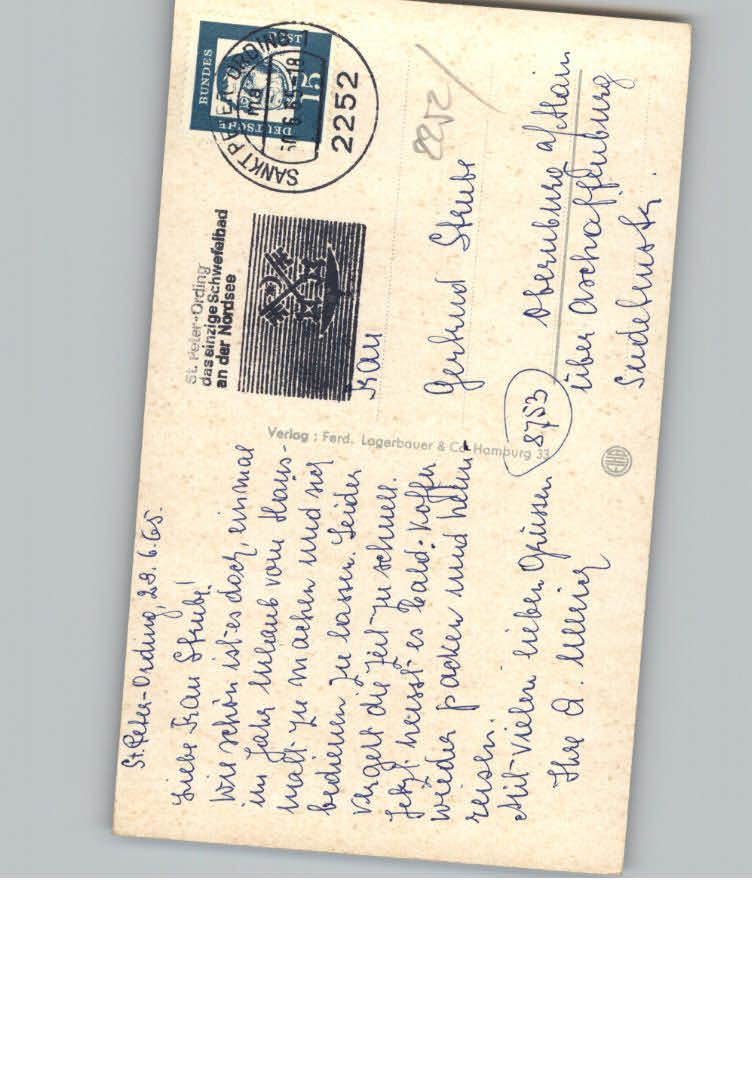 St. Peter-Ording, 28.6.65.
Liebe Frau Strube!
Wie schön ist es doch, einmal
im Jahr Urlaub vom Haus-
halt zu machen und sich
bedienen zu lassen. Leider
vergeht die Zeit zu schnell.
Jetzt heisst es bald: Koffer
wieder packen und heim-
reisen.
Mit vielen lieben Grüssen
Ihre A.
Verlag : Ferd. Lagerbauer & Co Hamburg 33
St. Peter-Ording
das einzige Schwefelbad
an der Nordsee
SANKT PETER-ORDING
2252
DEUTSCHE BUNDESPOST
15
2252
Frau
Gertrud Strube
8753
Obernburg a/Main
über Aschaffenburg
Sudetenstr.